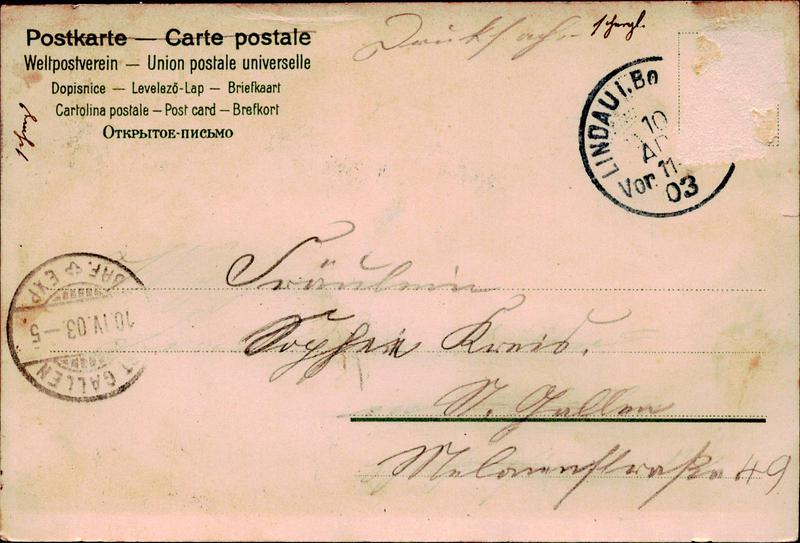 Postkarte — Carte postale
Weltpostverein — Union postale universelle
Dopisnice — Levelező-Lap — Briefkaart
Cartolina postale — Post card — Brefkort
Открытое-письмо
Drucksache
LINDAU i. Bo
10
AP
Vor. 11
03
BRF. EXP
10.IV.03.—5
T GALLEN
Fräulein
Sophie Kreis.
St. Gallen
49